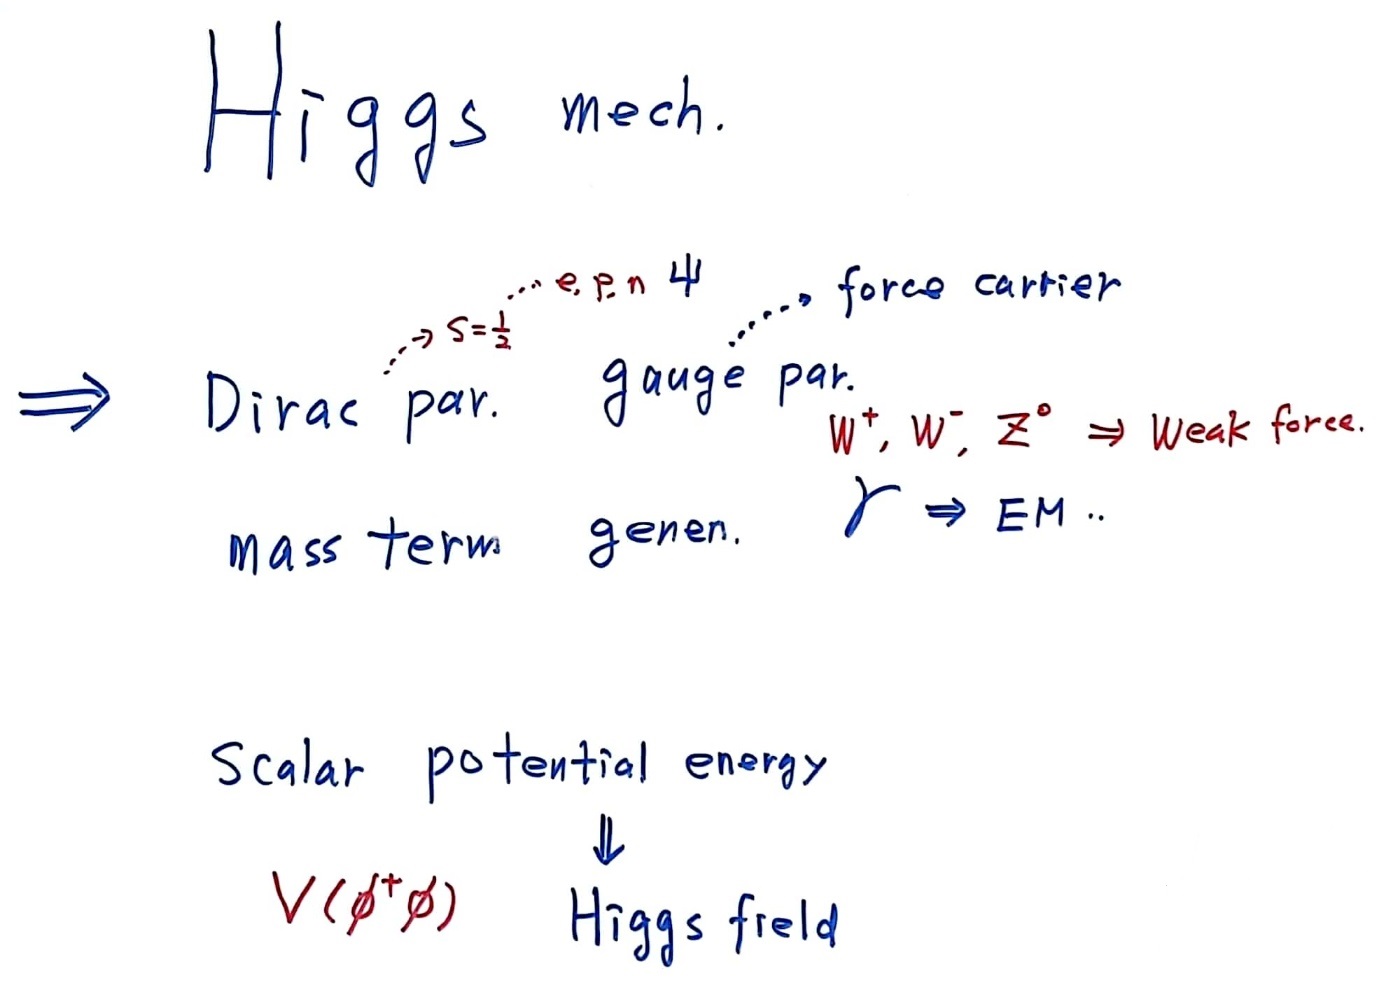 Higgs mech.
e, p, n ψ
→ S=½
force carrier
⇒ Dirac par. gauge par.
W⁺, W⁻, Z⁰ ⇒ Weak force.
γ ⇒ EM ..
mass term genen.
Scalar potential energy
⇓
V(ϕ⁺ϕ) Higgs field